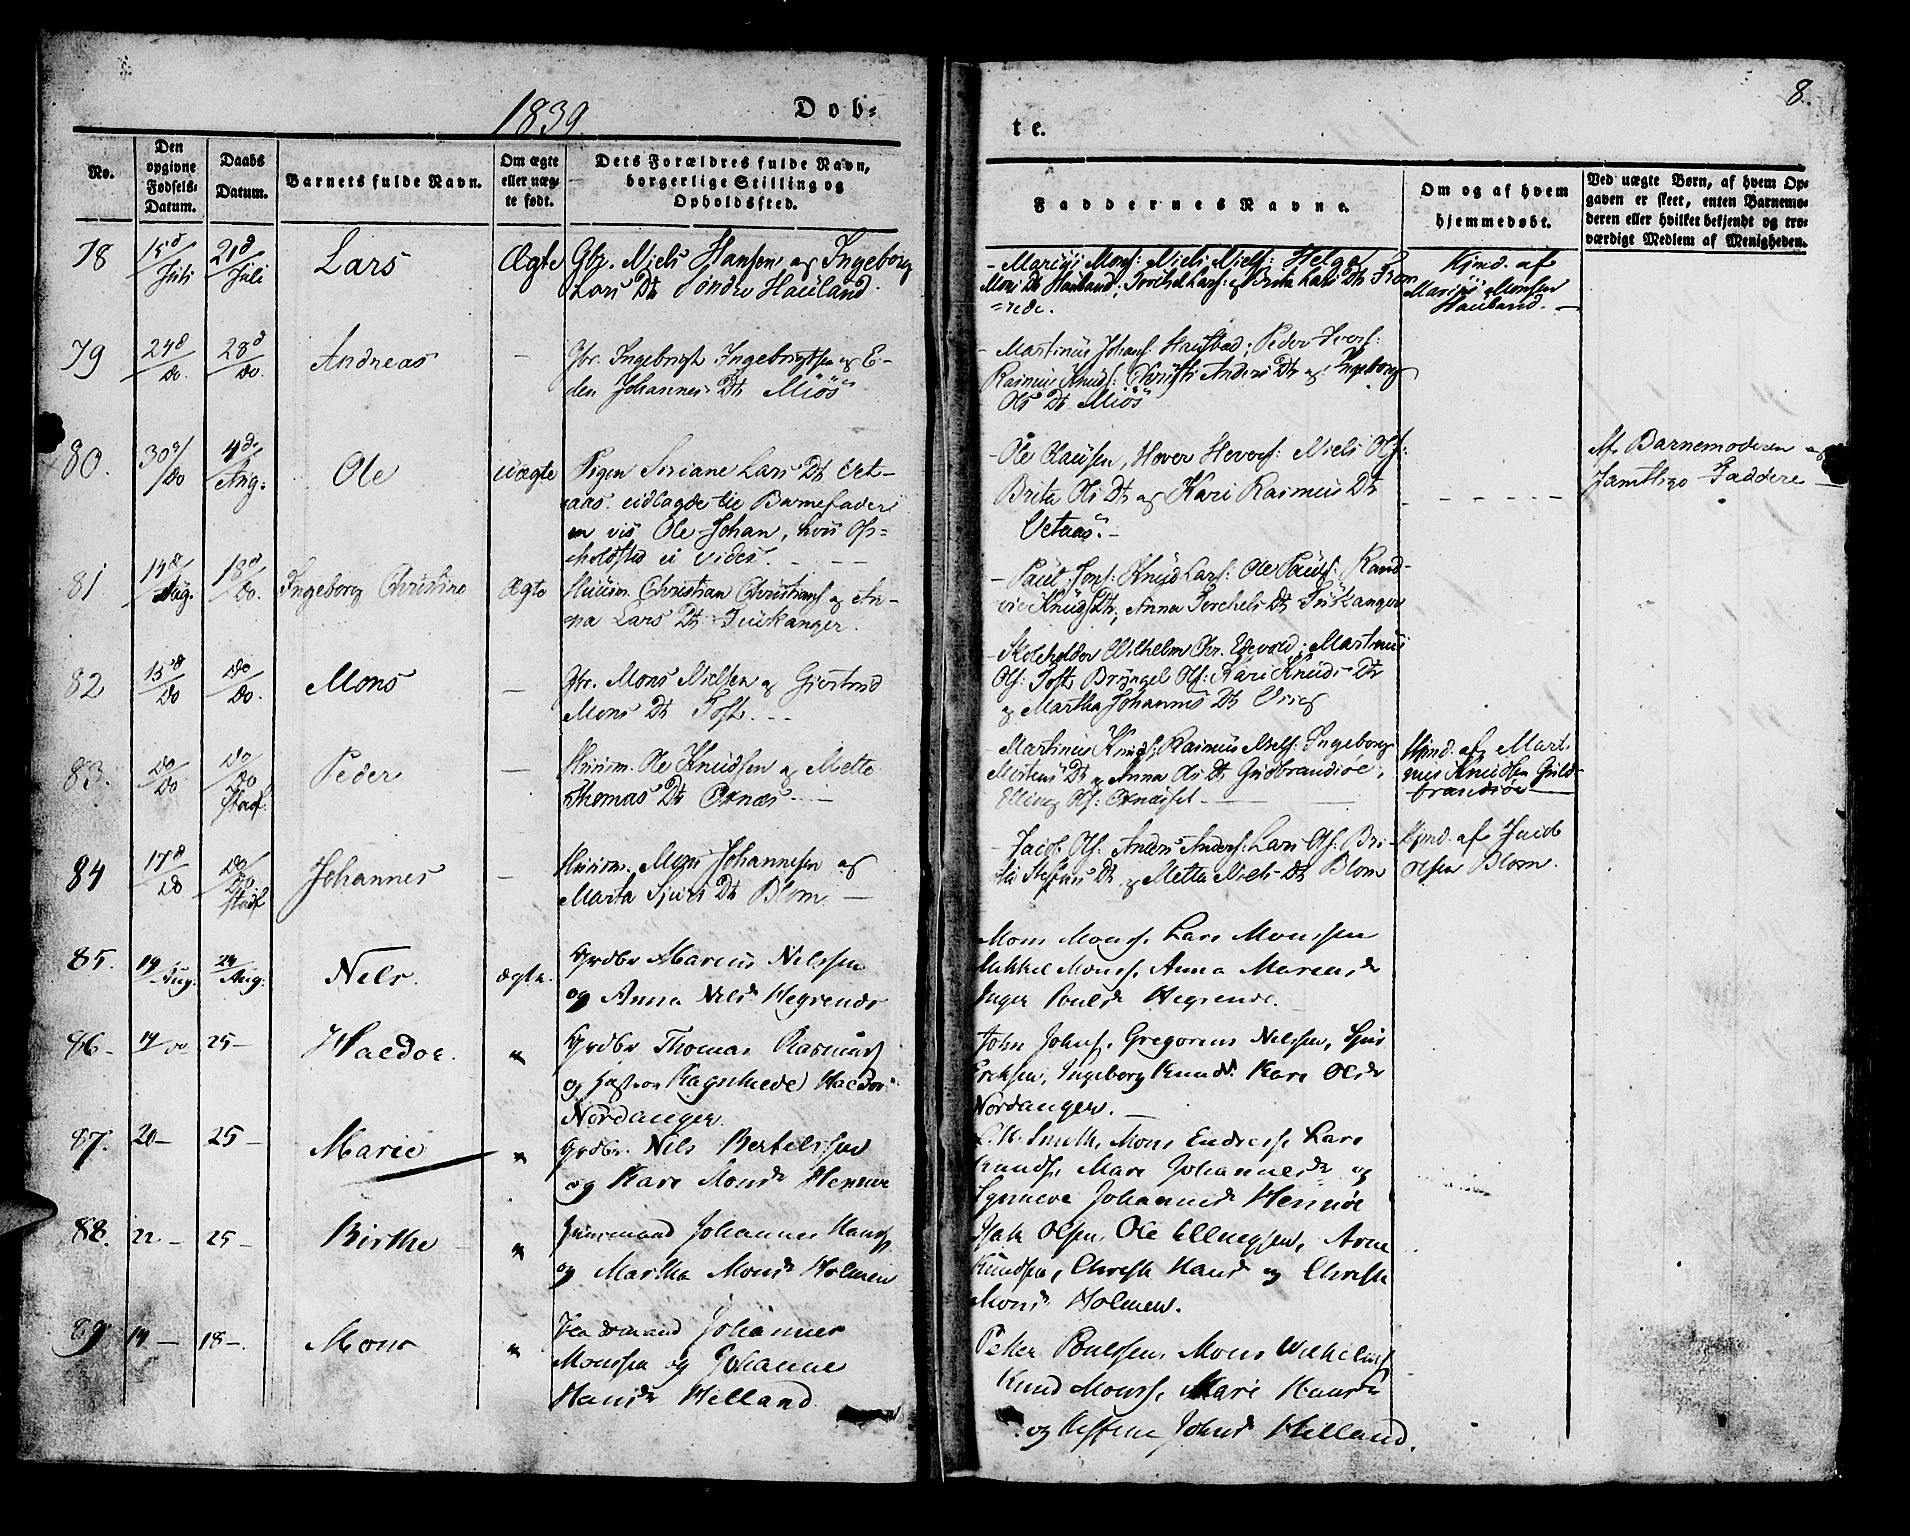 1839. Dob=
te. 8.
No.
Den opgivne Fødsels-Datum.
Daabs Datum.
Barnets fulde Navn.
Om ægte eller uægte født.
Dets Forældres fulde Navn, borgerlige Stilling og Opholdssted.
Faddernes Navne.
Om og af hvem hjemmedøbt.
Ved uægte Børn, af hvem Opgaven er skeet, enten Barnemoderen eller hvilket bekjendt og troværdigt Medlem af Menigheden.
78 15d/Juli 21d/Juli Lars Ægte Gbr. Niels Hansen og Ingeborg
Lars Dt Søndre Hauland
- Marius Mons: Niels Niels: Helge
Mons Dt Hauland; Torchel Lars: og Brita Lars Dt From
=rede.
Hjmd. af
Marius Monsen
Hauland. -
79 24d/do 28d/do. Andreas - Gbr. Ingebrigt Ingebrigtsen og E-
den Johannes Dt Miøs
- Martinus Johans: Haustad; Peder Ivers:
Rasmus Knuds: Christi Anders Dt og Ingeborg
Ols Dt Miøs
80. 30d/do 4de/Aug: Ole uægte Pigen Siriane Lars Dt Vet-
aas. udlagde til Barnefader
en vis Ole Johan, hvis Op-
holdsted ei vides.
- Ole Clausen, Hover Hevers: Niels Ols:
Brita Ols Dt og Kari Rasmus Dt
Vetaas. -
Af Barnemoderen og
samtlige Faddere
81 14d/Aug. 18d/do. Ingeborg Christine Ægte Huusm. Christian Christians og An-
na Lars Dt Fuskanger.
- Paul Jons: Knud Lars: Ole Pauls: Rand-
vie Knuds Dt; Anna Torchels Dt Fuskanger
82 15d/do do/do. Mons - Gbr. Mons Nielsen og Giertrud
Mons Dt Toft.
- Skoleholder Wilhelm Chr. Edevold; Martinus
Ols: Toft, Bryngel Ols: Kari Knuds Dt
og Martha Johannes Dt
83. do/do do/do Peder - Huusm. Ole Knudsen og Mette
Thomas Dt Oxnæs
- Martinus Knuds: Rasmus Niels: Ingeborg
Mortens Dt og Anna Ols Dt Guldbrandsøe,
Elling Ols:
Hjmd. af Marti
nus Knudsen Guld
brandsøe
84 17d/do do/do Johannes - Huusm. Mons Johannesen og
Marta Sjurs Dt Blom. -
- Jacob Ols: Anders Anders: Lars Ols: Bri-
ta Stefens Dt og Metta Niels Dt Blom
Hjmd. af Jacob
Olsen Blom.
85. 19/Aug. 24/Aug: Nels. ægte. Grdbr Marius Nelssen
og Anna Nelsd. Hegrenes
Mons Monss. Lars Monssen
Mikkel Monss. Anna Mariend.
Inger Poulsd. Hegrenes.
86. 19/do 25- Haldor. " Grdbr Thomas Rasmuss
og Ragnhilde Haldors
Nordanger.
John Johns. Gregorius Nelssen, Sjur
Ericksen, Ingeborg Knudsd. Kari Olsd.
Nordanger. -
87. 20- 25- Marie " Grdbr. Nels Bertelssen
og Kari Monsd. Hennøe
Smith, Mons Endress. Lars
Knuds. Mari Johannesd. og
Synneve Johannesd. Hennøe
88. 22- 25- Birthe " Huusmand Johannes Hanss
og Martha Monsd. Holmen
Isak Olsen. Ole Ellingsen, Arne
Knudsen, Christi Hansd. og Christi
Monsd. Holmen.
89 14- 18-. Mons " Johannes
Monssen og Johanne
Hansd. Helland.
Peter Poulssen, Mons Wilhelms
Knud Monss. Mari Hansd.
og Johnsd. Helland.